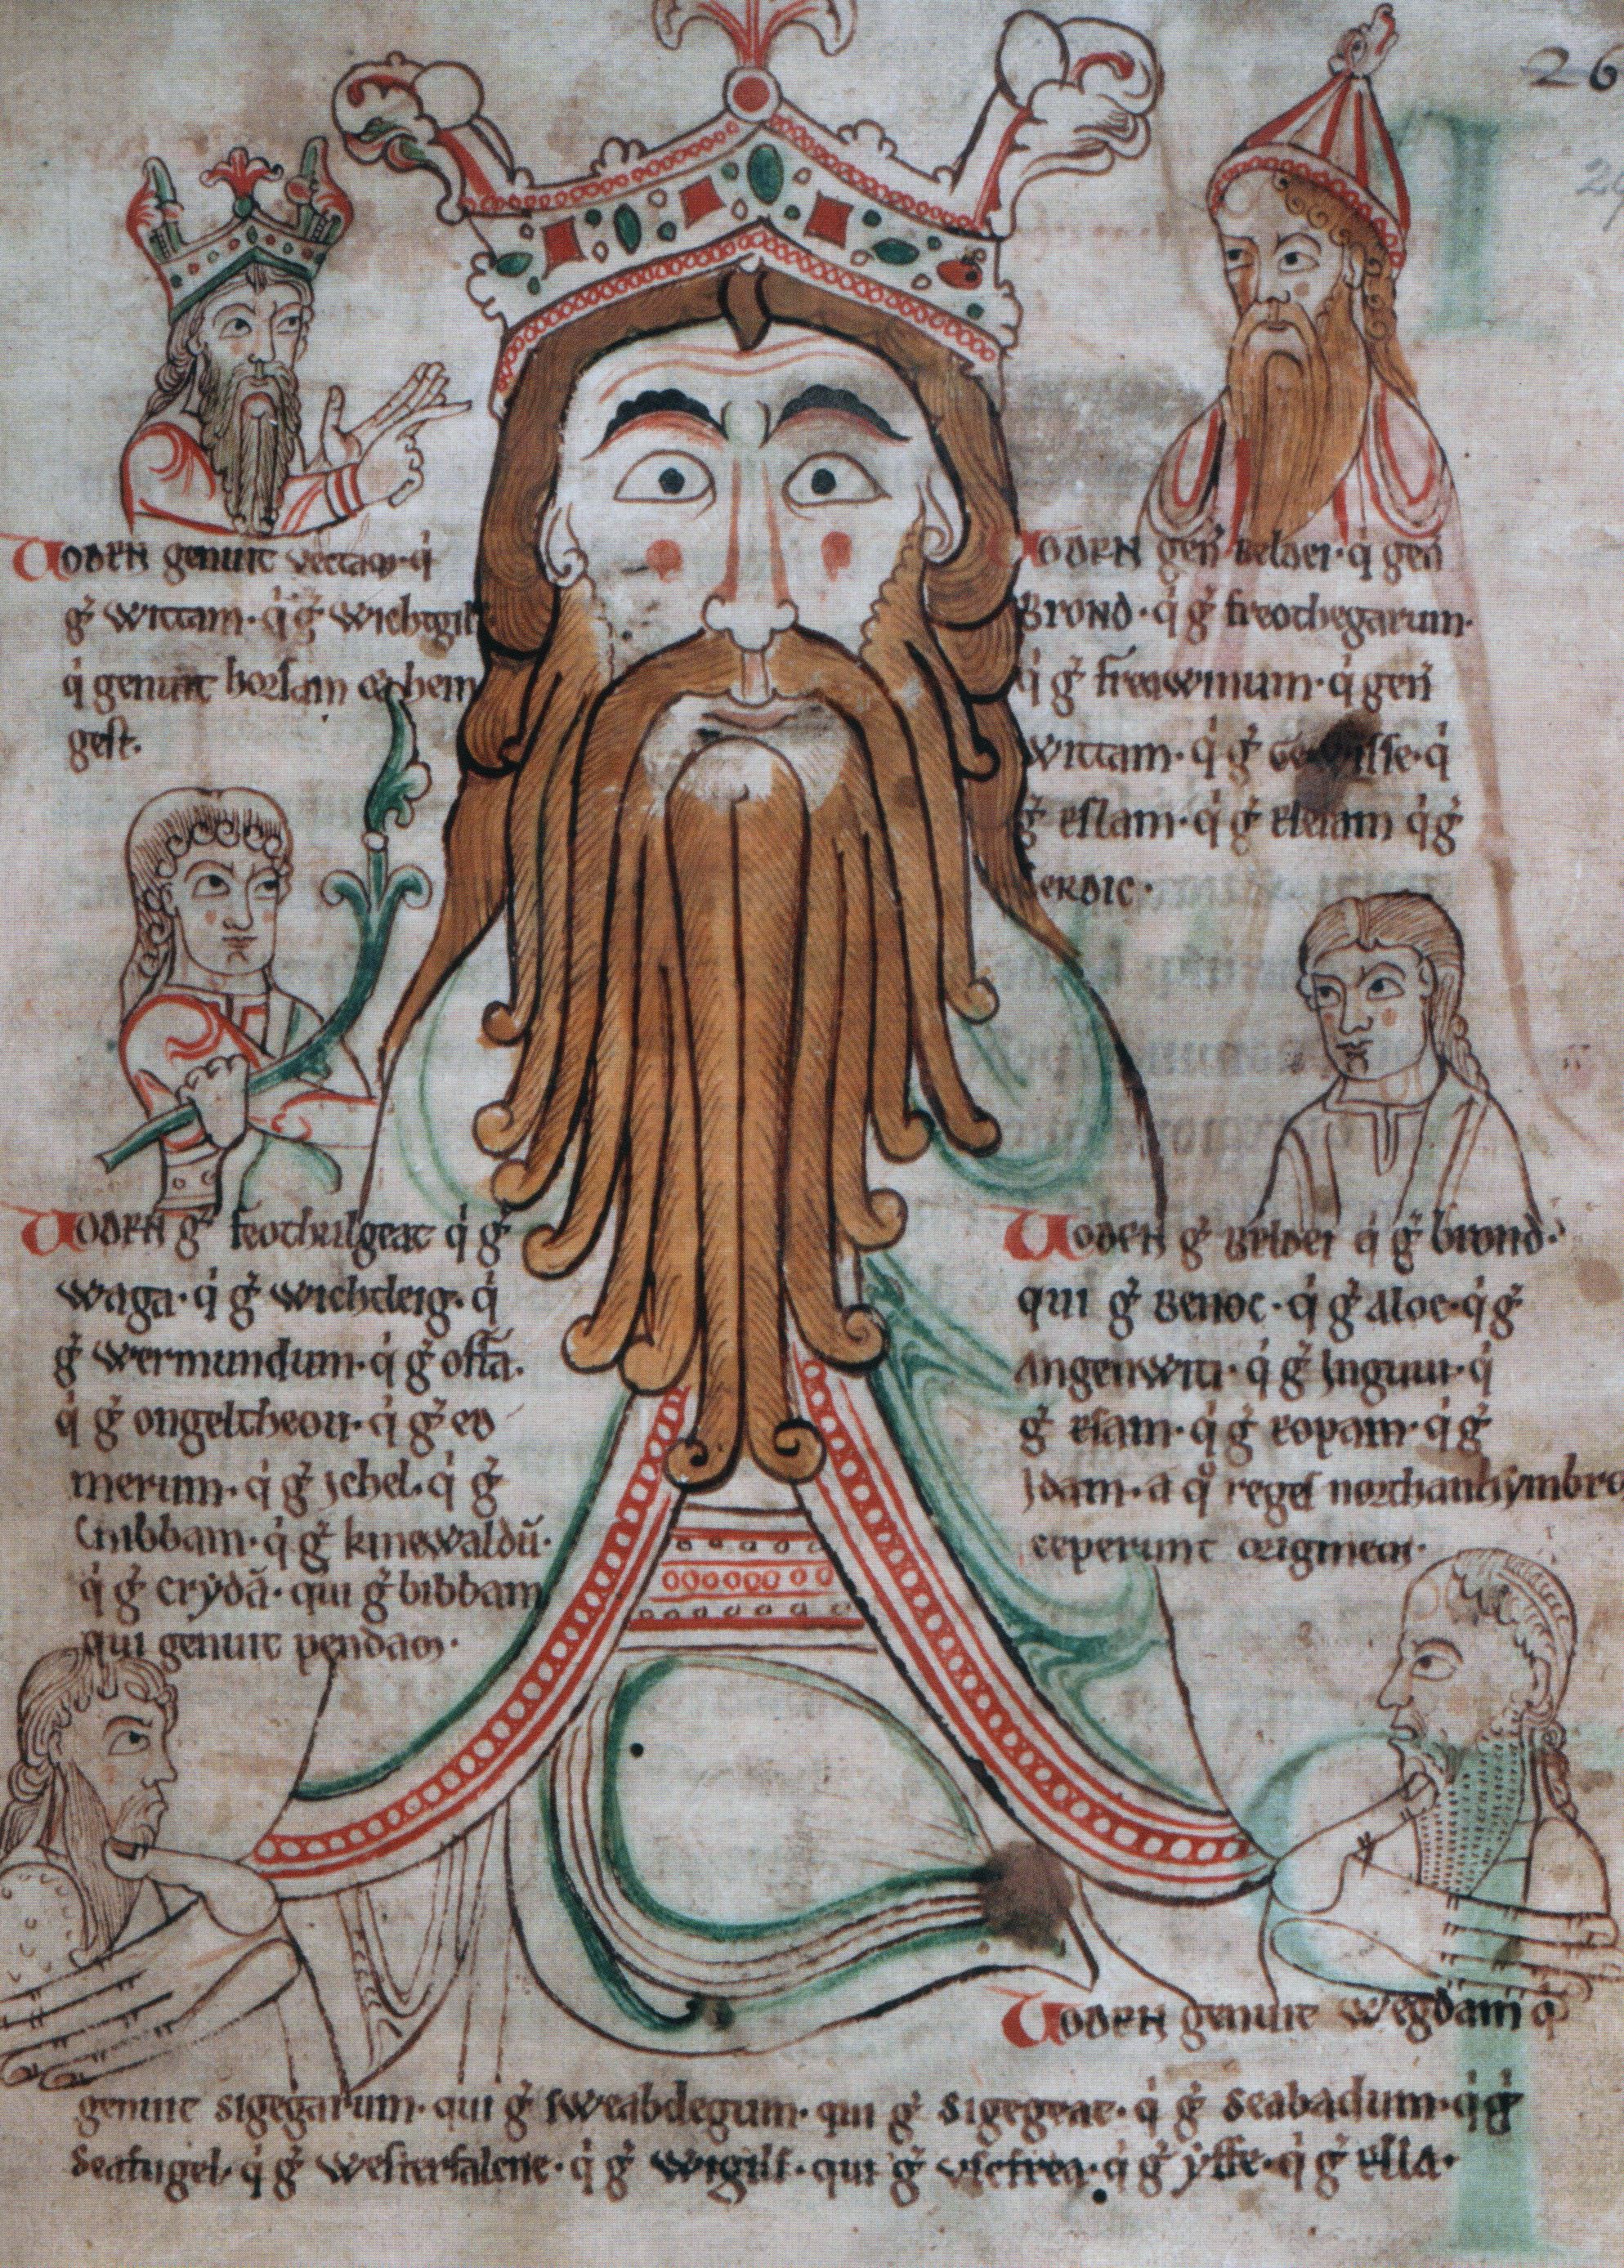 26
Woden genuit vectam · q̇
g̃ Wittam · q̇ g̃ Wichtgils
q̇ genuit horsam et hen
gest.
Woden geñ Beldei · q̇ geñ
Brond · q̇ g̃ freothegarum ·
q̇ g̃ freawinum · q̇ geñ
Wittam · q̇ g̃ Gewisse · q̇
g̃ eslam · q̇ g̃ elesam q̇ g̃
Cerdic ·
Woden g̃ feothulgeat q̇ g̃
waga · q̇ g̃ wichtleig · q̇
g̃ wermundum · q̇ g̃ offã.
q̇ g̃ ongeltheou · q̇ g̃ eo
merum · q̇ g̃ Ichel · q̇ g̃
Cnibbam · q̇ g̃ kinewaldũ ·
q̇ g̃ Crydã · qui g̃ bibbam
qui genuit pendam ·
Woden g̃ Beldei q̇ g̃ brond ·
qui g̃ Benoc · q̇ g̃ Aloc · q̇ g̃
Angenwiti · q̇ g̃ Inguui · q̇
g̃ esam · q̇ g̃ eopam · q̇ g̃
Idam · a q̊ reges northanhymbro
ceperunt originem ·
Woden genuit Wegdam q̇
genuit Sigegarum · qui g̃ swebdegum · qui g̃ Sigegeat · q̇ g̃ Seabadum · q̇ g̃
Seafugel · q̇ g̃ Westerfalene · q̇ g̃ Wigils · qui g̃ uscfrea · q̇ g̃ ysse · q̇ g̃ ella ·